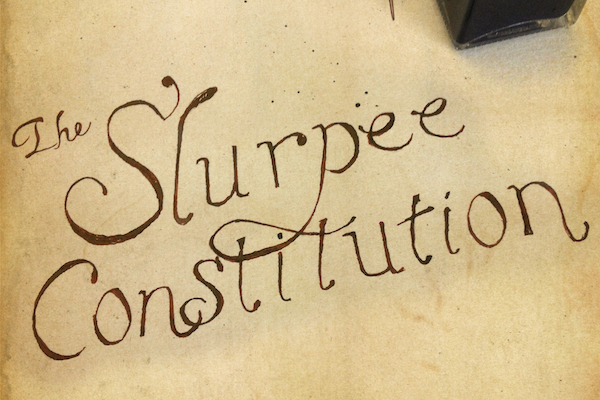 The Slurpee
Constitution